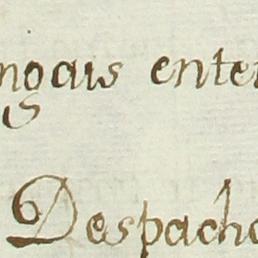 ngais ente
Despacho